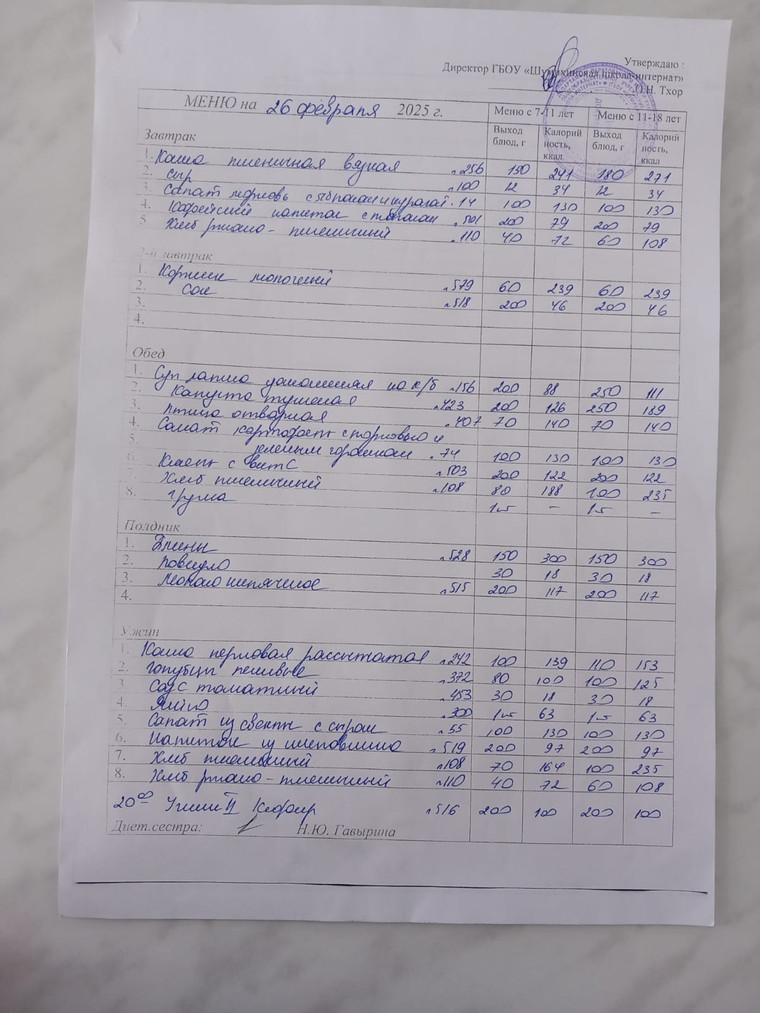 Утверждаю :
Директор ГБОУ «Шумихинская школа-интернат»
О.Н. Тхор
МЕНЮ на 26 февраля 2025 г. Меню с 7-11 лет Меню с 11-18 лет
Завтрак Выход блюд, г Калорий ность, ккал Выход блюд, г Калорий ность, ккал
1. Каша пшеничная вязкая №256 150 241 180 271
2. Сыр №100 12 34 12 34
3. Салат морковь с яблоками и курагой №14 100 130 100 130
4. Кофейный напиток с молоком №501 200 79 200 79
5. Хлеб ржано-пшеничный №110 40 72 60 108
2-й завтрак
1. Коржик молочный №579 60 239 60 239
2. Сок №518 200 46 200 46
3.
4.
Обед
1. Суп лапша домашняя на к/б №156 200 88 250 111
2. Капуста тушеная №423 200 126 250 189
3. Птица отварная №407 70 140 70 140
4. Салат картофельн с морковью и
5. зеленым горошком №74 100 130 100 130
6. Кисель с вит С №503 200 122 200 122
Хлеб пшеничный №108 80 188 100 235
8. Груша 1шт – 1шт –
Полдник
1. Блины №528 150 300 150 300
2. Повидло 30 18 30 18
3. Молоко кипяченое №515 200 117 200 117
4.
Ужин
1. Каша перловая рассыпчатая №242 100 139 110 153
2. Голубцы ленивые №372 80 100 100 125
3. Соус томатный №453 30 18 30 18
4. Яйцо №300 1шт 63 1шт 63
5. Салат из свеклы с сыром №55 100 130 100 130
6. Напиток из шиповника №519 200 97 200 97
7. Хлеб пшеничный №108 70 164 100 235
8. Хлеб ржано-пшеничный №110 40 72 60 108
20⁰⁰ Ужин II Кефир №516 200 100 200 100
Диет.сестра: Н.Ю. Гавырина